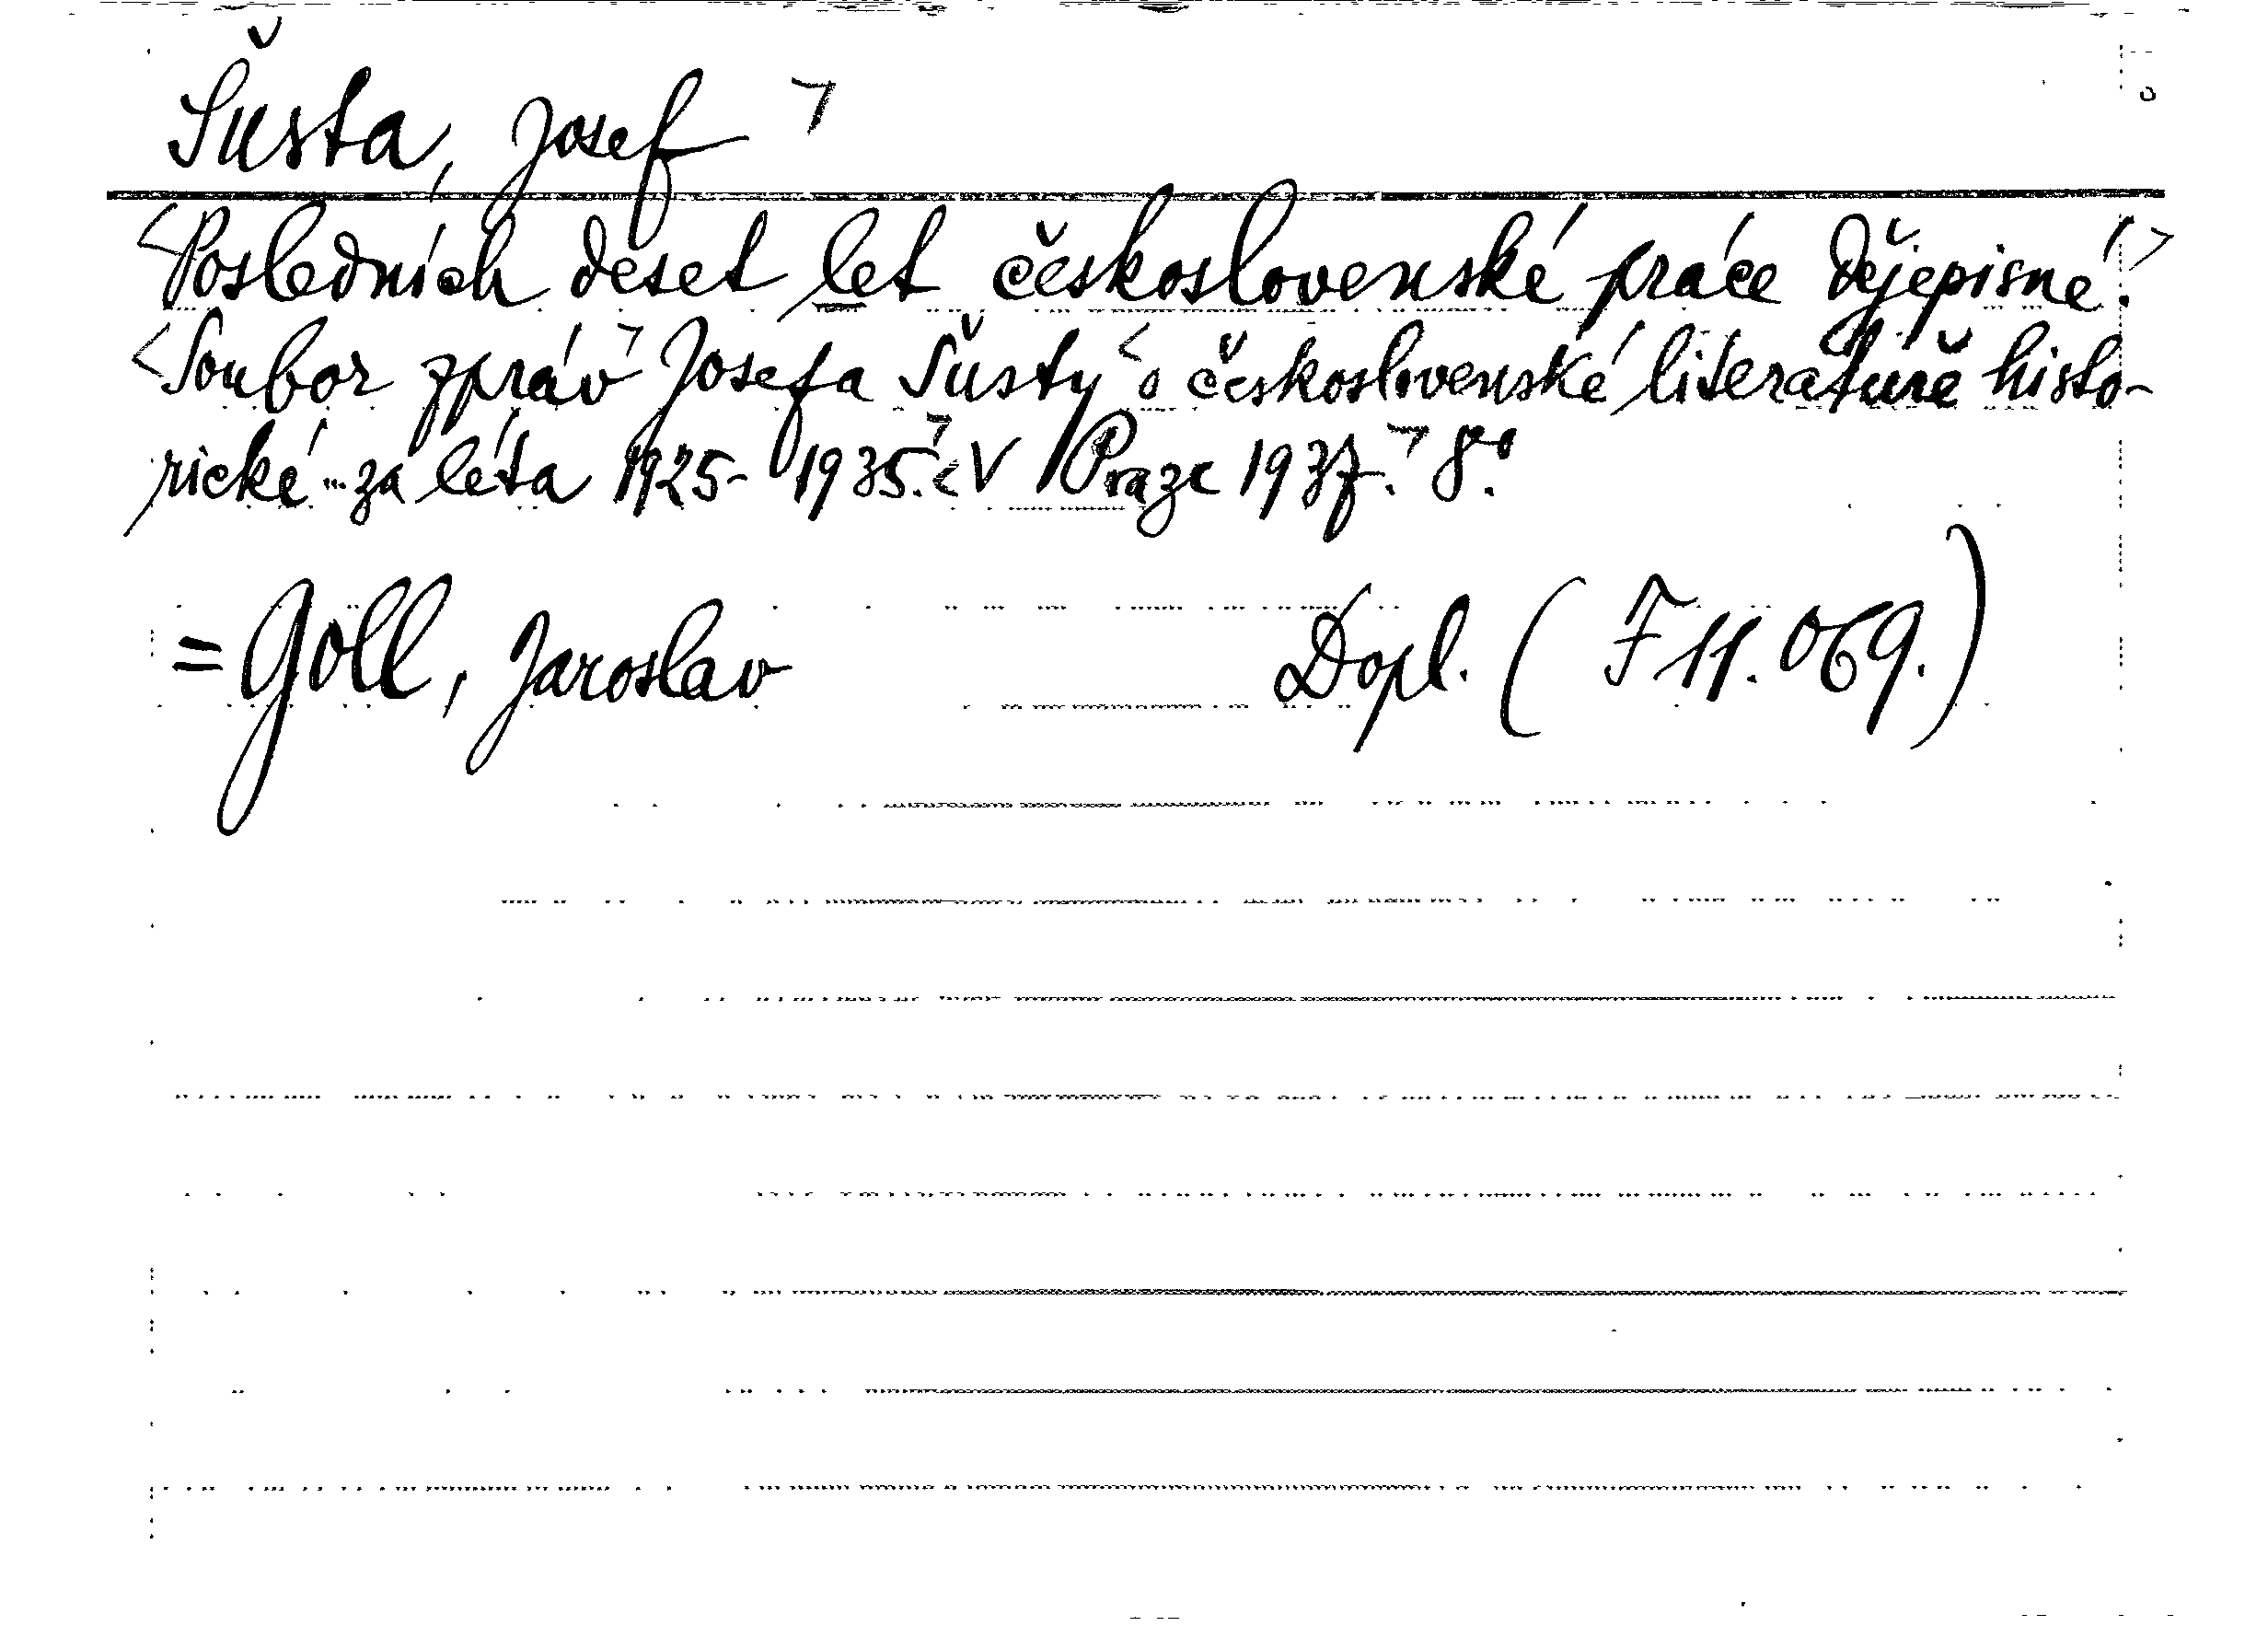 Šusta, Josef
Posledních deset let československé práce dějepisné.
Soubor zpráv Josefa Šusty o československé literatuře histo-
rické ... za léta 1925-1935. V Praze 1937. 8°.
= Goll, Jaroslav Dopl. (F 11.069.)